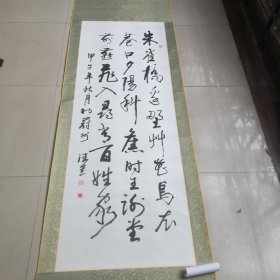 朱雀橋邊野草花烏衣
巷口夕陽斜舊時王謝堂
前燕飛入尋常百姓家
甲午年秋月